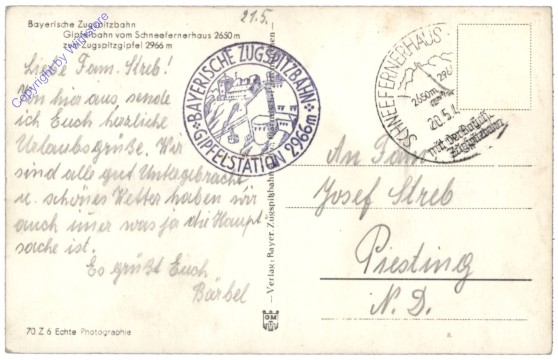 21.5.
Bayerische Zugspitzbahn
Gipfelbahn vom Schneefernerhaus 2650 m
zum Zugspitzgipfel 2966 m
Copyright by Wignore
Liebe Fam. Streb!
Von hier aus sende
ich Euch herzliche
Urlaubsgrüße. Wir
sind alle gut untergebracht
u. schönes Wetter haben wir
auch imer was ja die Haupt-
sache ist.
Es grüßt Euch
Bärbel
70 Z 6 Echte Photographie
BAYERISCHE ZUGSPITZBAHN
GIPFELSTATION 2966m
Verlag: Bayer. Zugspitzbahn
GM
SCHNEEFERNERHAUS
2650m
20.5.
mit der Bayer.
Zugspitzbahn
An Fam.
Josef Streb
Piesting
N. D.